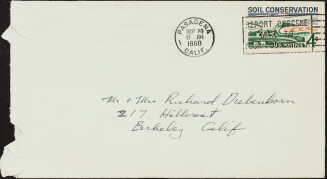 SOIL CONSERVATION
PASADENA
SEP 20
11 AM
1960
CALIF.
REPORT OBSCENE
MAIL TO
4¢
Mr & Mrs Richard Diebenkorn
217 Hillcrest
Berkeley Calif